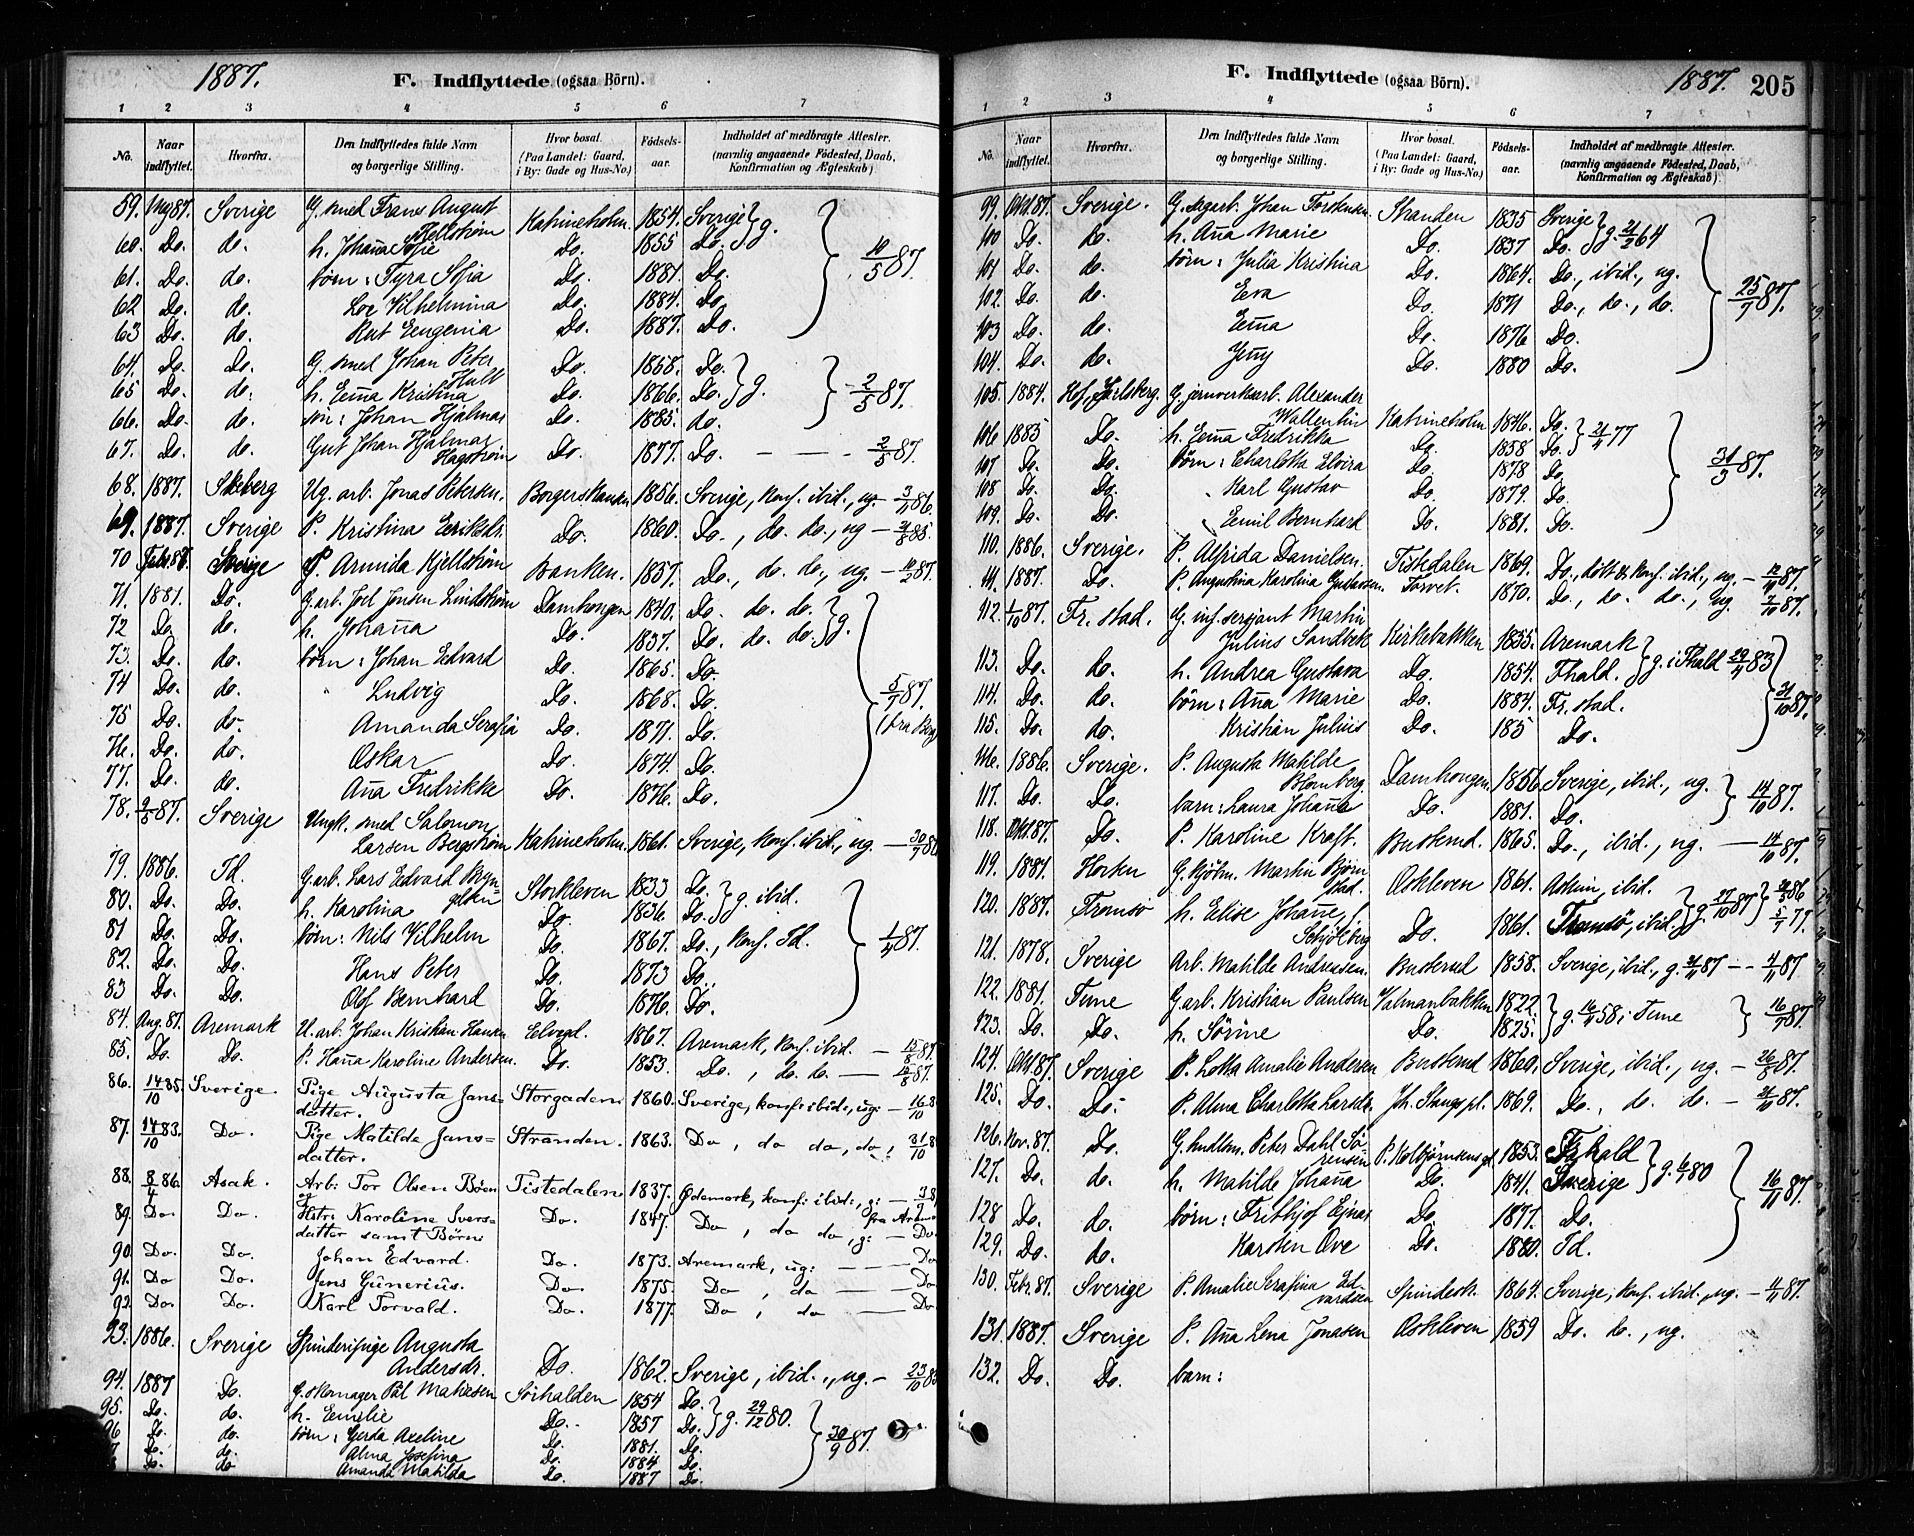 1887.
F. Indflyttede (ogsaa Börn).
1 2 3 4 5 6 7
No. Naar indflyttet. Hvorfra. Den Indflyttedes fulde Navn og borgerlige Stilling. Hvor bosat. (Paa Landet: Gaard, i By: Gade og Hus-No.) Födsels-aar. Indholdet af medbragte Attester. (navnlig angaaende Födested, Daab, Konfirmation og Ægteskab)
59. 87. Sverige G. smed Frans August Kjellström Katrineholm 1854. Sverige } g.
60. Do. do. h. Johana Sofie Do. 1855 Do. 10/5 87.
61. Do. do. börn: Tyra Sofia Do. 1881. Do.
62 Do. do. Vilhelmina Do. 1884. Do.
63 Do. do. Rut Eugenia Do. 1887. Do.
64. Do. Do. G. smed Johan Peter Hult Do. 1858. Do. } g.
65 Do. do. h. Emma Kristina Do. 1866. Do. 2/5 87.
66. Do. do. sön: Johan Hjalmar Do. 1885. do.
67. Do. do. Gut Johan Hjalmar Hagström Do. 1877. Do. — — 2/5 87.
68. 1887. Skeberg Ug. arb. Jonas Petersen. Borgerskansen 1856. Sverige, konf. ibid., ug. — 3/11 86.
69. 1887. Sverige P. Kristina Eriksdr. Do. 1860. Do., do. do., ug —
70 Febr. 87. Sverige P. Armida Kjellström Banken. 1837. Do., do. do., ug. — 10/2 87.
71. 1881. Do. G. arb. Joel Jonsen Lindström Damhougen 1840. Do. do. do. } g.
72 Do. do. h. Johana Do. 1837. Do. do. do.
73. Do. do. börn: Johan Edvard Do. 1865. Do.
74 Do. do. Ludvig Do. 1868. Do. 5/7 87. (fra Berg)
75 Do. do. Amanda Serafia Do. 1871. Do.
76. Do. do. Oskar Do. 1874. Do.
77. Do. do. Ana Fredrikke Do. 1876. Do.
78. 2/8 87. Sverige Ungk. smed Salomon Larsen Bergström Katrineholm. 1861. Sverige, konf. ibid., ug. —
79. 1886. Id. G. arb. Lars Edvard Storkleven 1833 Do. } g. ibid.
80. Do. Do. h. Karolina Do. 1836. Do.
81 Do. Do. börn: Nils Vilhelm Do. 1867. Do., konf. Id. 1/4 87.
82. Do. Do. Hans Peter Do. 1873 Do.
83 Do. Do. Olof Bernhard Do. 1876. Do.
84. Aug. 87. Aremark U. arb. Johan Kristian Hansen Elvegd. 1867. Aremark, konf. ibid. — 15/8 87.
85. Do. Do. P. Hana Karoline Andersen. Do. 1853. Do., do. do. — 15/8 87.
86. 14/10 85. Sverige. Pige Augusta Jansdatter. Storgaden 1860. Sverige, konf: ibid:, ug: — 16/10
87. 14/10 83. Do. Pige Matilda Jansdatter. Stranden. 1863. Do, do do, do, 31/10
88. 8/4 86. Asak. Arb: Tor Olsen Böen og Tistedalen 1837. Ödemark, konf: ibid:, g: —
89. Do. Do. Hstr: Karoline Iversdatter samt Börn: Do. 1847. Do, do do, g: — Do
90. Do. Do. Johan Edvard. Do. 1873. Aremark, ug: — — Do
91. Do Do. Jens Günerius. Do. 1875. Do, do — Do
92. Do. Do. Karl Torvald. Do. 1877. Do, do — Do
93. 1886. Sverige Spinderipige Augusta Andersdr. Do. 1862. Sverige, ibid., ug. — 23/10
94. 1887 Do. G. skomager Pål Matiesen Sörhalden 1854 Do. } g. 29/12 80.
95. Do. do. h. Emilie Do. 1857 Do.
96 Do. do. börn: Gerda Axeline Do. 1881. Do. 30/9 87.
Do. do. Alma Josefina Do. 1884 Do.
Do. do Amanda Matilda Do. 1887 Do.
F. Indflyttede (ogsaa Börn).
1887. 205
1 2 3 4 5 6 7
No. Naar indflyttet. Hvorfra. Den Indflyttedes fulde Navn og borgerlige Stilling. Hvor bosat. (Paa Landet: Gaard, i By: Gade og Hus-No.) Födsels-aar. Indholdet af medbragte Attester. (navnlig angaaende Födested, Daab, Konfirmation og Ægteskab)
99. Okt. 87. Sverige. G. Johan Torstensen Stranden 1835 Sverige } g. 64
100 Do. do. h. Ana Marie Do. 1837 Do.
101 Do. do. börn: Julia Kristina Do. 1864. Do., ibid., ug.
102. Do. do. Eva Do. 1871 Do., do., do. 25/7 87.
103 Do. do. Ema Do. 1876 Do.
104. Do. do. Jeny Do. 1880 Do.
105. 1884. Hof, Jarlsberg. G. jernverksarb. Alexander Wallentin Katrineholm 1846. Do. } 77
106 1885 Do. h. Ema Fredrikka Do. 1858 Do.
107 Do. Do. börn: Charlotta Elvira Do. 1878 Do. 31/3 87.
108 Do. Do. Karl Gustav Do. 1879. Do.
109. Do. Do. Emil Bernhard Do. 1881. Do.
110. 1886. Sverige. P. Alfrida Danielsen. Tistedalen 1869. Do., döbt & konf. ibid., ug. — 87.
111. 1887. Do. P. Augustina Karolina Gustavsen. Torvet. 1870. Do., do. do., ug. 7/10 87.
112. 1/10 87. Fr. stad. G. inf. sergjant Martin Julius Sandbek Kirkebakken 1855. Aremark } g. i Fhald 83
113. Do. do. h. Andrea Gustava Do. 1854. Fhald. 31/10 87.
114. Do. do. börn: Ana Marie Do. 1884. Fr. stad.
115. Do. do. Kristian Julius Do. 185 Do.
116. 1886. Sverige. P. Augusta Matilde Blomberg Damhougen. 1856 Sverige, ibid., ug. 14/10 87.
117. Do. Do. barn: Laura Johana Do. 1881. Do.
118. Okt. 87. Do. P. Karoline Kraft. Busterud. 1865. Do., ibid., ug. — 14/10 87.
119. 1884. Horten G. kjöbm. Martin Björnstad. Oskleven 1861. Askim, ibid. } g. 27/10 87
120. 1887. Tromsö h. Elise Johanne f. Schjölberg Do. 1861. Tromsö, ibid.
121. 1878. Sverige Arb. Matilde Andreasen. Busterud 1858. Sverige, ibid., g. 87 — 4/11 87
122. 1881. Tune G. arb. Kristian Paulsen Valmanbakken 1822. } g. 58 i Tune 16/7 87.
123. Do. Do. h. Sörine Do. 1825.
124. Okt. 87. Sverige P. Lotta Amalie Andersen Busterud 1860. Sverige, ibid., ug. — 26/8 87.
125. Do. Do. P. Alma Charlotta Larsdr. Joh. Stangs pl. 1869. Do., do. do. — 87.
126. Nov. 87. Do. G. hndlsm. Peter Dahl Sörensen P. Kolbjörnsens gd. 1853. Frhald } g. 80
127. Do. do. h. Matilde Johana Do. 1841. Sverige 16/11 87.
128 Do. do. börn: Frithjof Ejnar Do. 1877. Do.
129. Do. do. Karsten Ove Do. 1880. Id.
130. Febr. 87. Sverige P. Amalie Serafina Edvardsen Spindesk. 1864. Sverige, konf. ibid., ug. — 87.
131. 1887. Sverige P. Ana Lena Jonasen Oskleven 1859 Do. do., ug.
132. Do. Do. barn: